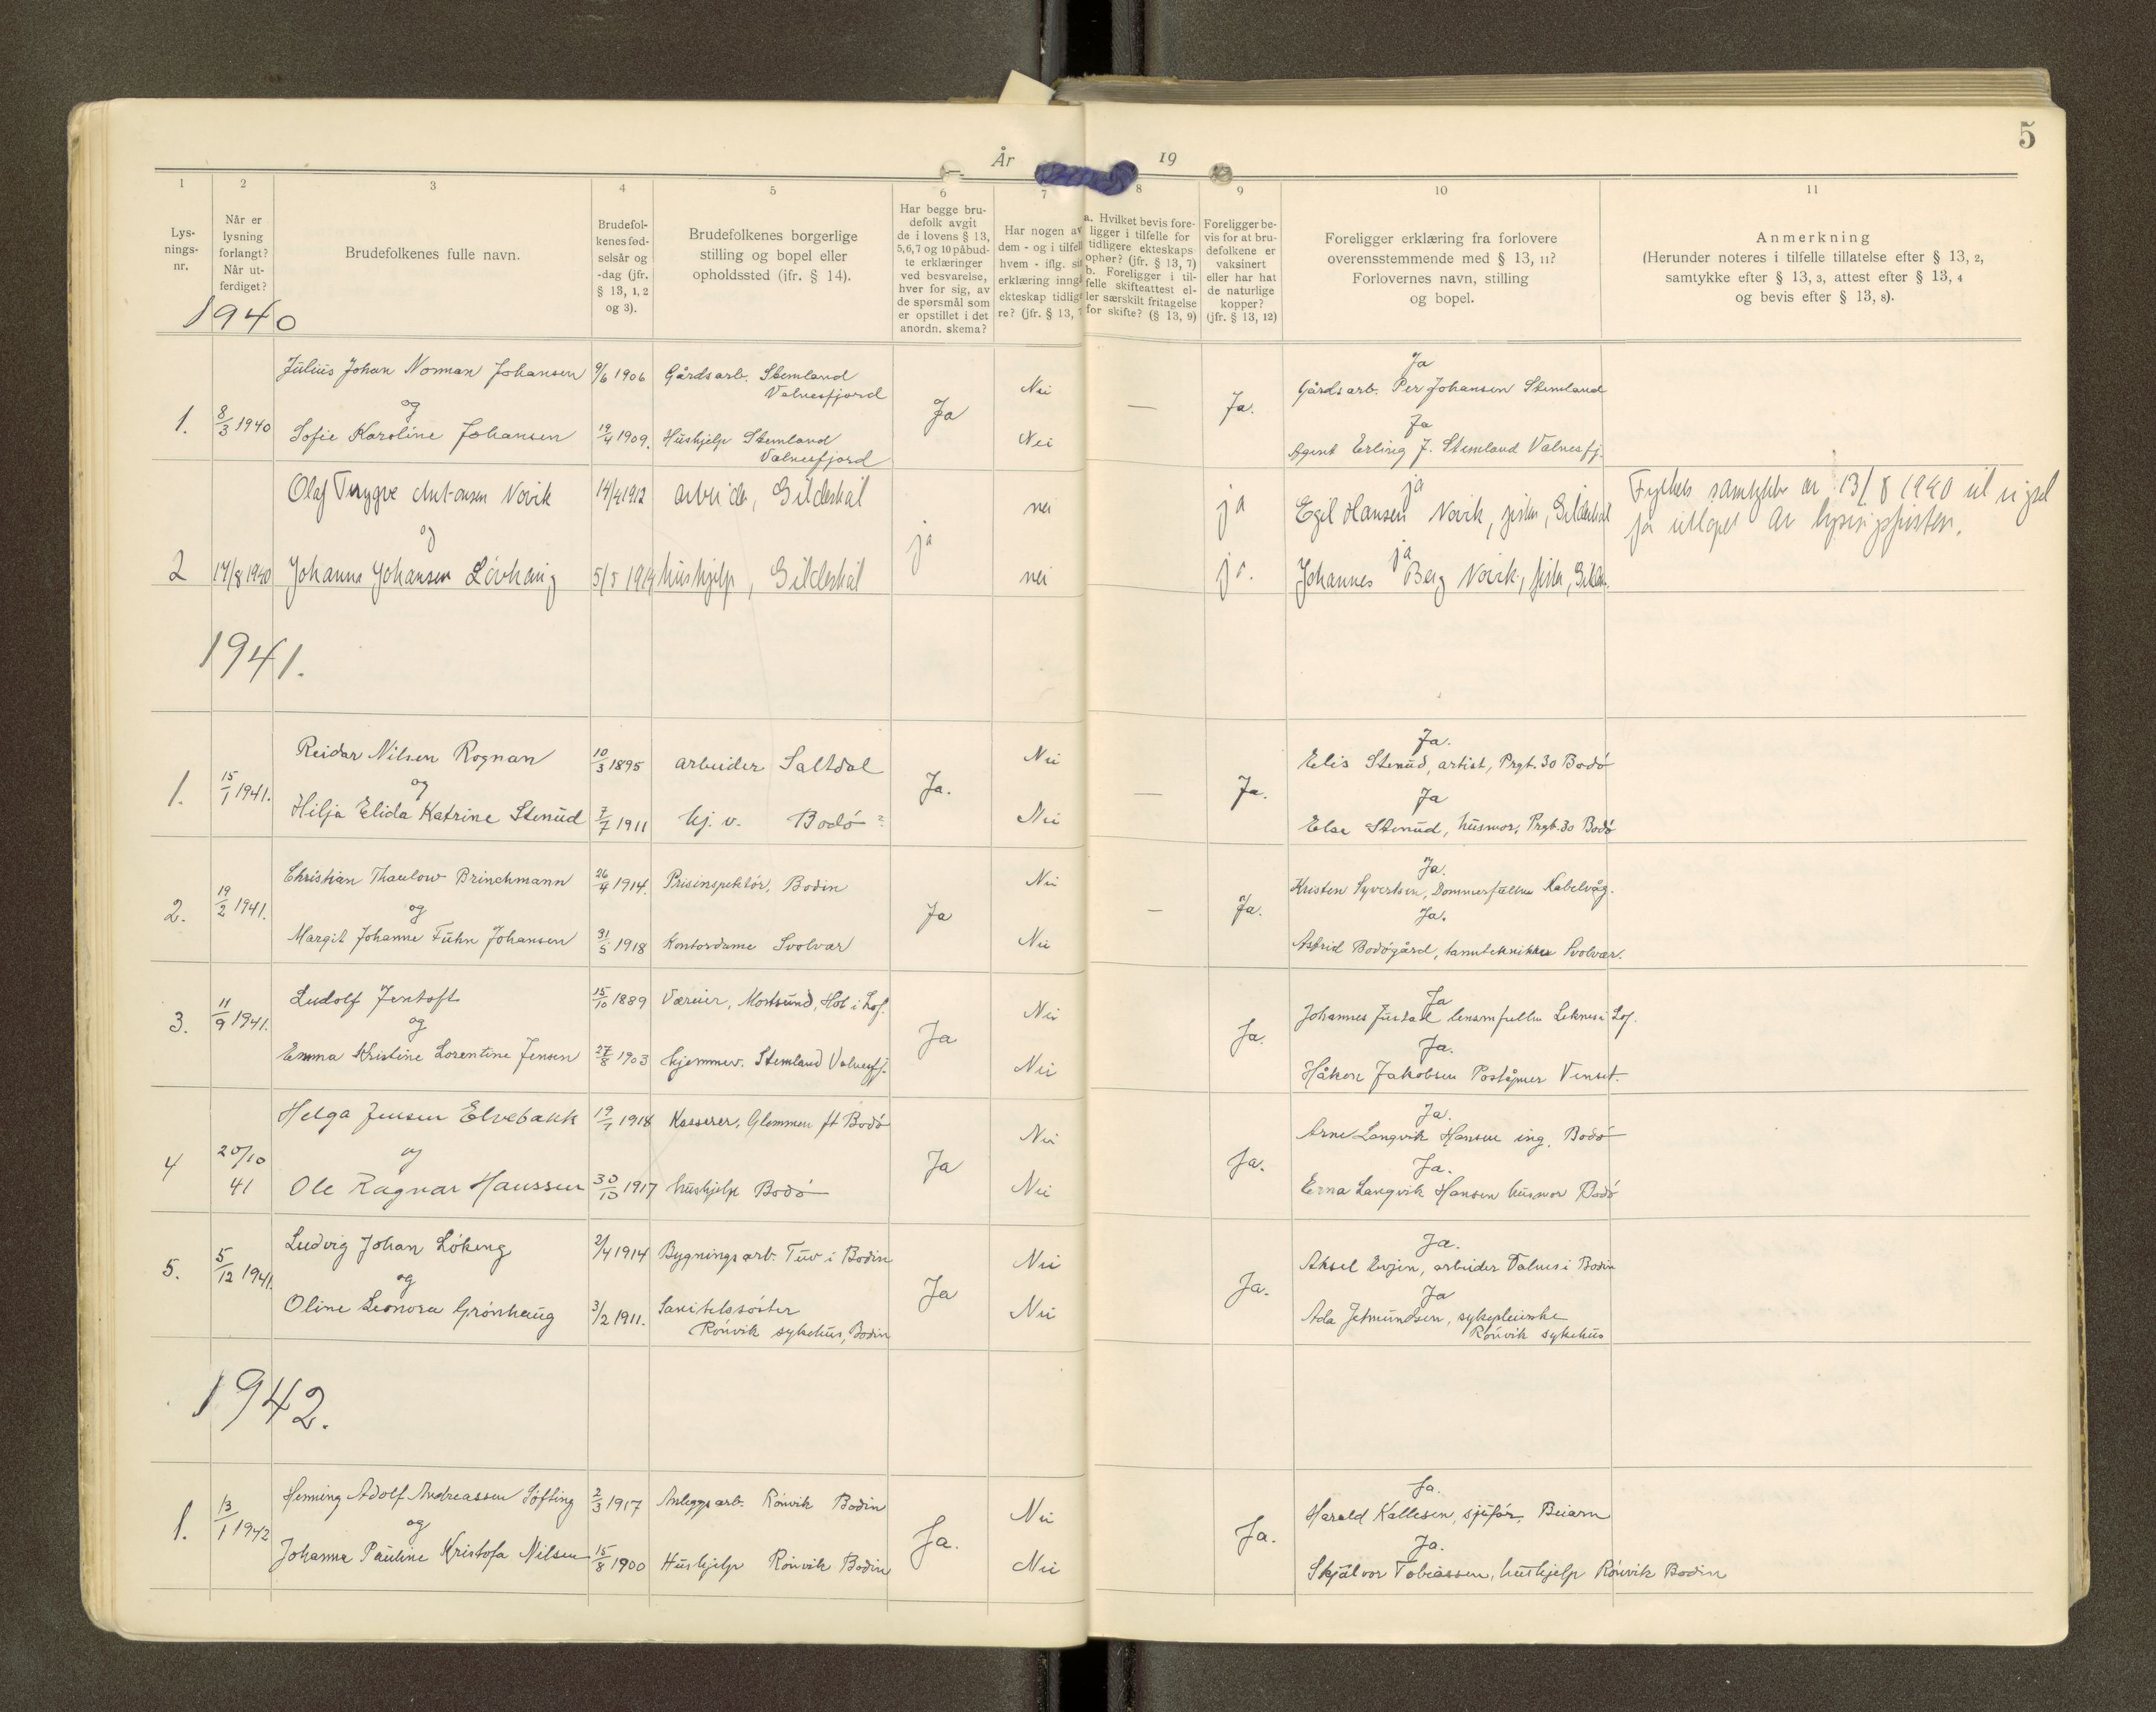 5
År 19
1 2 3 4 5 6 7 8 9 10 11
Lys-
nings-
nr.
Når er
lysning
forlangt?
Når ut-
ferdiget?
Brudefolkenes fulle navn.
Brudefol-
kenes fød-
selsår og
-dag (jfr.
§ 13, 1, 2
og 3).
Brudefolkenes borgerlige
stilling og bopel eller
opholdssted (jfr. § 14).
Har begge bru-
defolk avgit
de i lovens § 13,
5,6,7 og 10 påbud-
te erklæringer
ved besvarelse,
hver for sig, av
de spørsmål som
er opstillet i det
anordn. skema?
Har nogen av
dem - og i tilfell
hvem - iflg. si
erklæring inng
ekteskap tidlig
re? (jfr. § 13, 7
a. Hvilket bevis fore-
ligger i tilfelle for
tidligere ekteskaps
ophør? (jfr. § 13, 7)
b. Foreligger i til-
felle skifteattest el-
ler særskilt fritagelse
for skifte? (§ 13, 9)
Foreligger be-
vis for at bru-
defolkene er
vaksinert
eller har hat
de naturlige
kopper?
(jfr. § 13, 12)
Foreligger erklæring fra forlovere
overensstemmende med § 13, 11?
Forlovernes navn, stilling
og bopel.
Anmerkning
(Herunder noteres i tilfelle tillatelse efter § 13, 2,
samtykke efter § 13, 3, attest efter § 13, 4
og bevis efter § 13, 8).
1940
Julius Johan Norman Johansen 9/6 1906 Gårdsarb. Stemland Nei Ja
Valnesfjord Gårdsarb. Per Johansen Stemland
1. 8/3 1940 og Ja — Ja. Ja
Sofie Karoline Johansen 19/4 1909. Hushjelp Stemland Nei Agent Erling J. Stemland Valnesfj.
Valnesfjord
Olaf Trygve Antonsen Novik 14/4 1912 arbeider, Gildeskål nei ja ja Fylkets samtykke av 13/8 1940 til vigsel
Egil Hansen Novik, fisker, Gildeskål før utløpet av lysingsfristen.
og ja ja
2 14/8 1940 Johanna Johansen Lövhaug 5/5 1919 hushjelp, Gildeskål nei ja. Johannes Berg Novik, fisker, Gildesk.
1941.
Reidar Nilsen Rognan 10/3 1895 arbeider Saltdal Nei Ja.
Elis Stenud, artist, Prgt. 30 Bodö
1. 15/1 1941. og Ja. — Ja. Ja
Hilja Elida Katrine Stenud 7/7 1911 hj. v. Bodö Nei Else Stenud, husmor, Prgt. 30 Bodö
Christian Thaulow Brinchmann 26/4 1914. Prisinspektör, Bodin Nei Ja.
Kristen Syvertsen, Dommerfullm Kabelvåg.
2. 19/2 1941. og Ja — Ja. Ja.
Margit Johanne Fuhn Johansen 31/5 1918 Kontordame Svolvær Nei Astrid Bodögård, tannteknikker Svolvær.
Ludolf Jentoft 15/10 1889 Væreier, Mortsund, Hol i Lof. Nei Ja
Johannes Justad lensmfullm Leknes i Lof.
3. 11/9 1941. og Ja Ja. Ja.
Emma Kristine Lorentine Jensen 27/8 1903 hjemmev. Stemland Valnesfj. Nei Håkon Jakobsen Poståpner Venset.
Helga Jensen Elvebakk 19/1 1918 Kasserer, Glemmen ft Bodö Nei Ja.
Arne Langvik Hansen ing. Bodö
4 20/10 41 og Ja Ja. Ja.
Ole Ragnar Hanssen 30/10 1917 hushjelp Bodö Nei Erna Langvik Hansen husmor Bodö
Ludvig Johan Löking 2/4 1914 Bygningsarb. Tuv i Bodin Nei Ja.
Aksel Evjen, arbeider Valnes i Bodin
5. 5/12 1941. og Ja Ja. Ja
Oline Leonora Grönhaug 3/2 1911. Sanitetssöster Nei Ada Jetmundsen, sykepleierske
Rönvik sykehus, Bodin Rönvik sykehus
1942.
Henning Adolf Andreassen Söfting 2/3 1917 Anleggsarb. Rönvik Bodin Nei Ja.
Harald Kallesen, sjåför, Beiarn
1. 13/1 1942 og Ja. Ja. Ja.
Johanna Pauline Kristofa Nilsen 15/8 1900 Hushjelp Rönvik Bodin Nei Skjalvor Tobiassen, hushjelp Rönvik Bodin